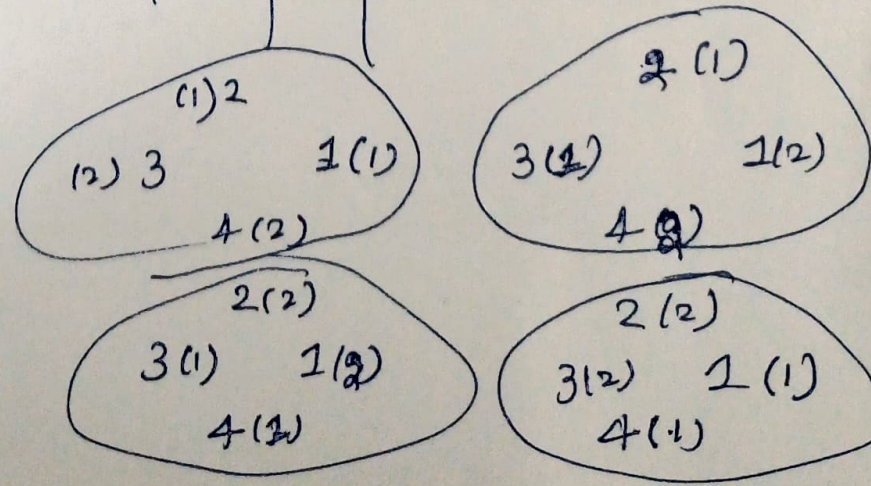 (1) 2
(2) 3 1 (1)
4 (2)
2 (1)
3 (1) 1 (2)
4 (2)
2 (2)
3 (1) 1 (2)
4 (1)
2 (2)
3 (2) 1 (1)
4 (1)